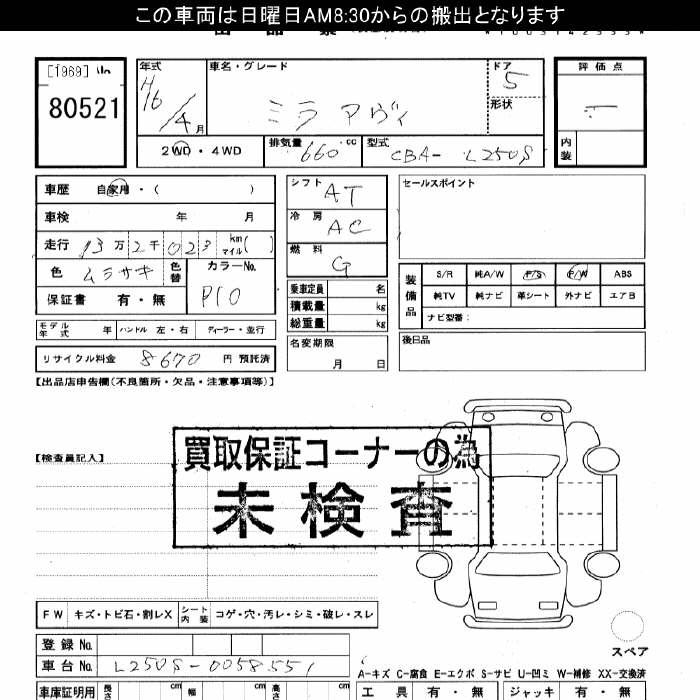 この車両は日曜日AM8:30からの搬出となります
[1969]
80521
年式 車名・グレード ドア 評価点
H16/4月 ミラ アヴィ 5
形状
内装
2WD・4WD 排気量 660 cc 型式 CBA- L250S
車歴 自家用・( )
車検 年 月
走行 13万2千023 km マイル( )
色 ムラサキ 色替 カラーNo. P10
保証書 有・無
モデル年式 年 ハンドル 左・右 ディーラー・並行
リサイクル料金 8670 円 預託済
シフト AT
冷房 AC
燃料 G
乗車定員 名
積載量 kg
総重量 kg
名変期限
月 日
セールスポイント
装備品 S/R 純A/W P/S P/W ABS
純TV 純ナビ 革シート 外ナビ エアB
ナビ型番:
後日品
【出品店申告欄(不良箇所・欠品・注意事項等)】
【検査員記入】
買取保証コーナーの為
未検査
FW キズ・トビ石・割レX シート内装 コゲ・穴・汚レ・シミ・破レ・スレ
スペア
登録No.
車台No. L250S-0058551
A-キズ C-腐食 E-エクボ S-サビ U-凹ミ W-補修 XX-交換済
車庫証明用 長さ cm 幅 cm 高さ cm 工具 有・無 ジャッキ 有・無